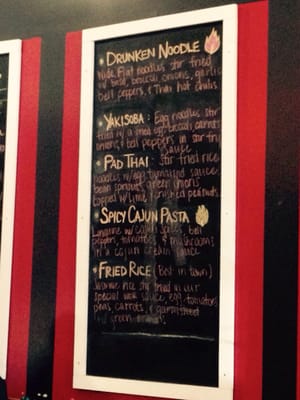 DRUNKEN NOODLE
Wide Flat noodles stir fried
w/ basil, broccoli, onions, garlic
bell peppers, & Thai hot chilis.
YAKISOBA: Egg noodles stir
fried w/ a fried egg, broccoli, carrots
onions, & bell peppers in stir fry
sauce
PAD THAI: Stir fried rice
noodles w/ egg, tamarind sauce
bean sprouts, green onions
topped w/ lime & crushed peanuts.
SPICY CAJUN PASTA
Linguine w/ cajun spices, bell
peppers, tomatoes, & mushrooms
in a cajun cream sauce
FRIED RICE (Best in town)
Jasmine rice stir fried in our
special wok sauce, egg, tomatoes,
peas, carrots, & garnished
w/ green onions.